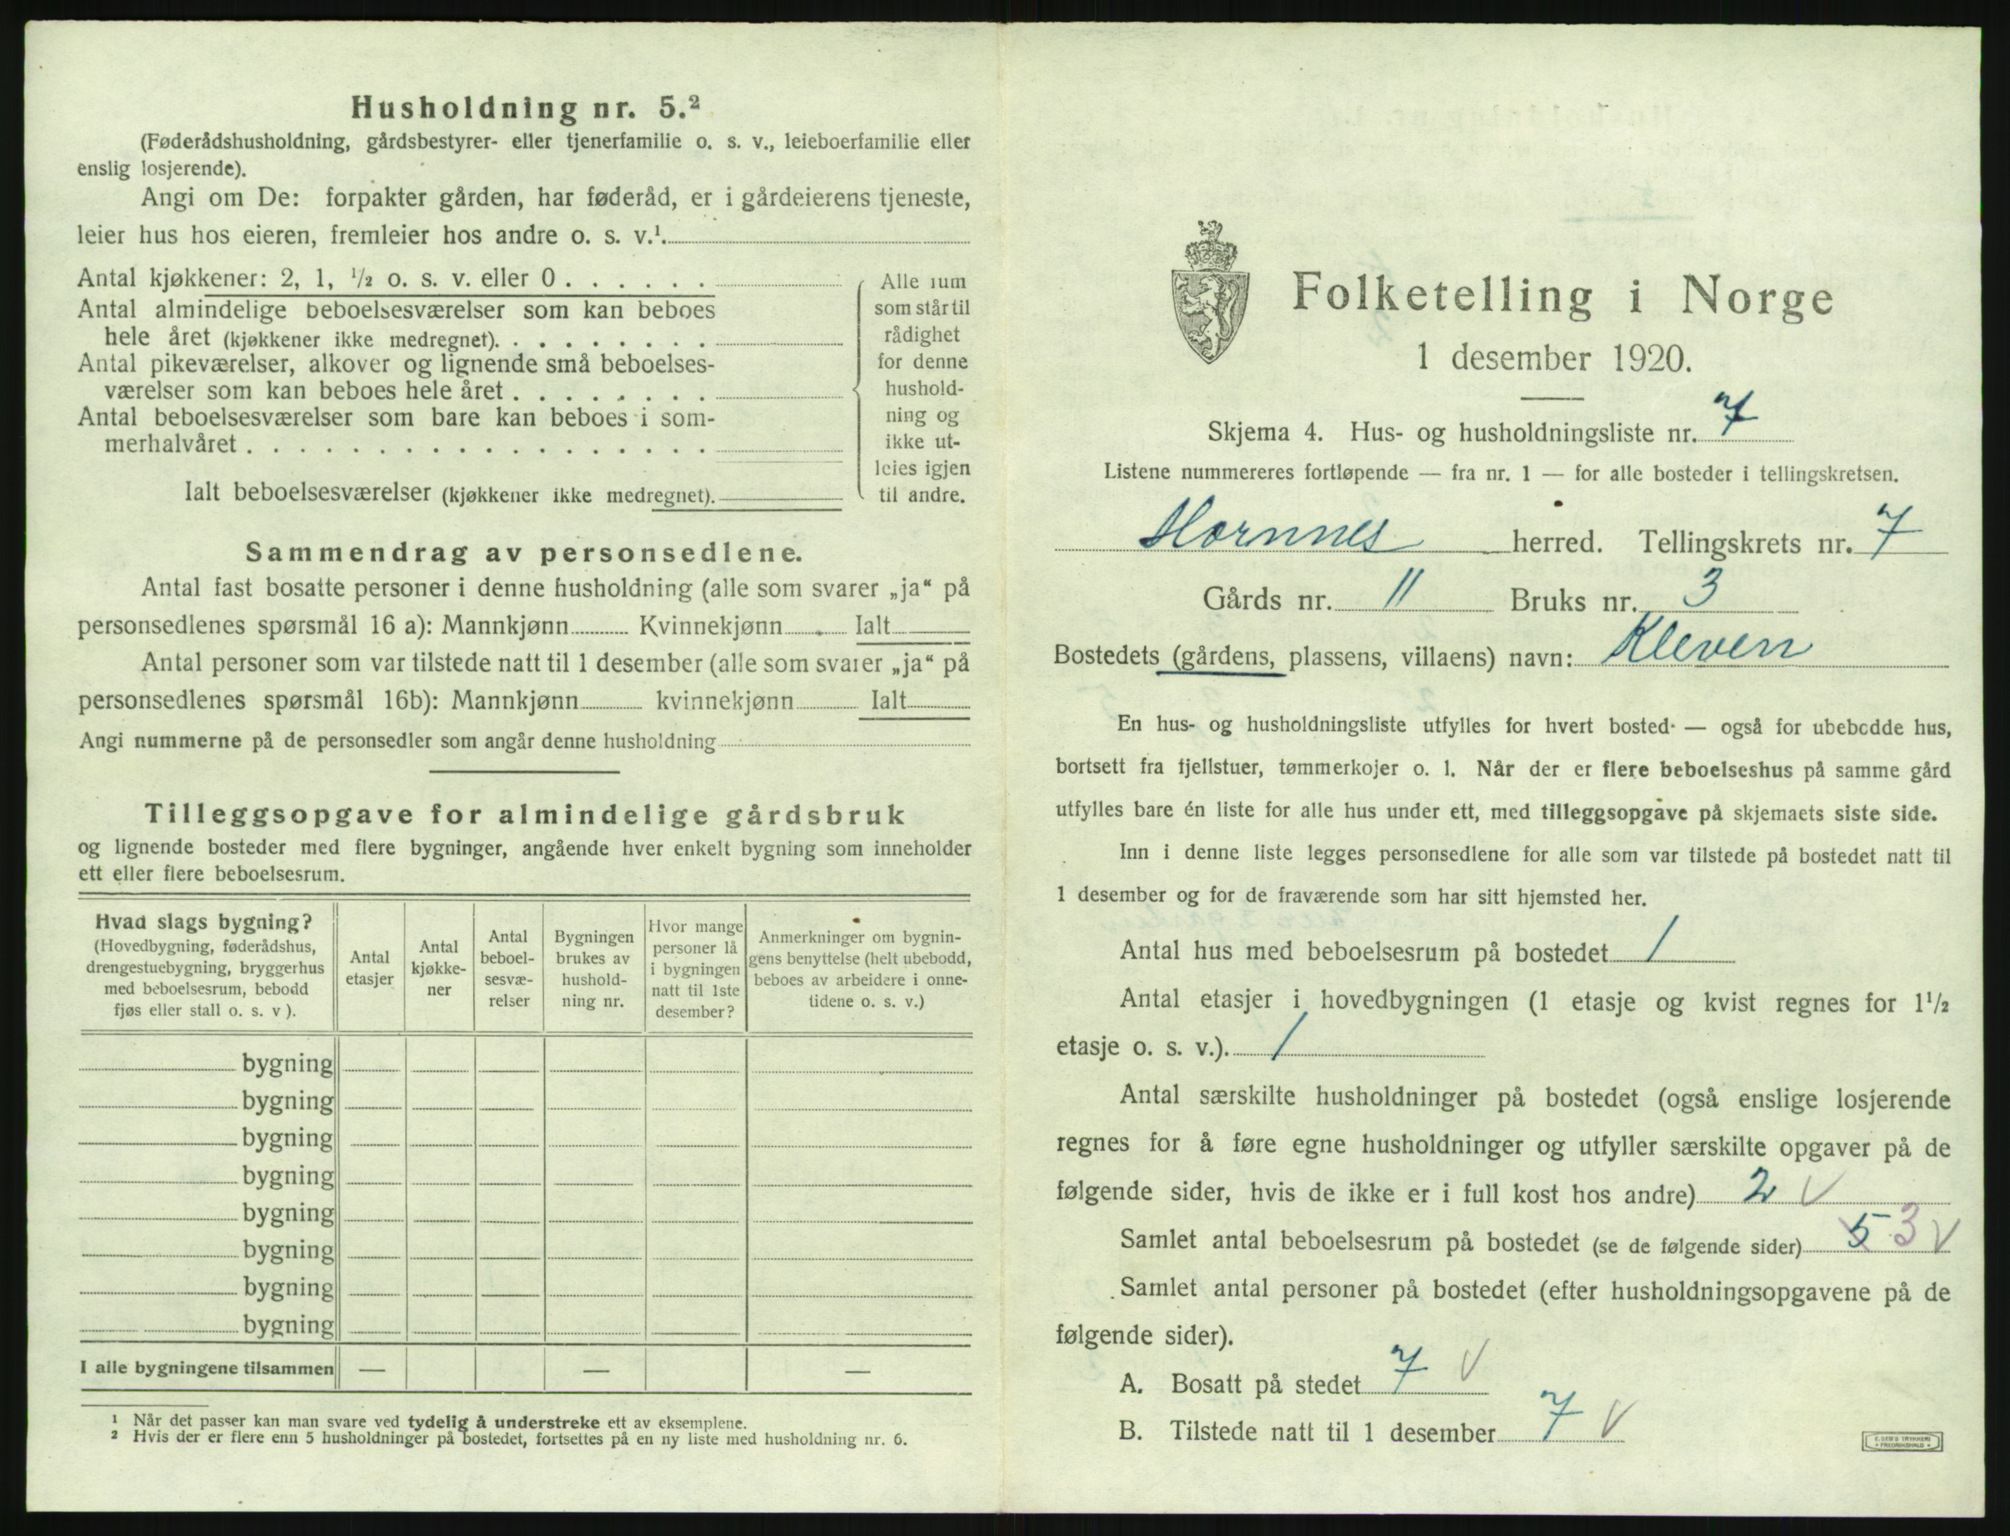 Husholdning nr. 5.²
(Føderådshusholdning, gårdsbestyrer- eller tjenerfamilie o. s. v., leieboerfamilie eller
enslig losjerende).
Angi om De: forpakter gården, har føderåd, er i gårdeierens tjeneste,
leier hus hos eieren, fremleier hos andre o. s. v.¹.
Antal kjøkkener: 2, 1, ¹/₂ o. s. v. eller 0 . . . . . .
Antal almindelige beboelsesværelser som kan beboes
hele året (kjøkkener ikke medregnet). . . . . . . . .
Antal pikeværelser, alkover og lignende små beboelses-
værelser som kan beboes hele året . . . . . . . .
Antal beboelsesværelser som bare kan beboes i som-
merhalvåret . . . . . . . . . . . . . . . . . .
Ialt beboelsesværelser (kjøkkener ikke medregnet).
Alle rum
som står til
rådighet
for denne
hushold-
ning og
ikke ut-
leies igjen
til andre.
Sammendrag av personsedlene.
Antal fast bosatte personer i denne husholdning (alle som svarer „ja“ på
personsedlenes spørsmål 16 a): Mannkjønn Kvinnekjønn Ialt
Antal personer som var tilstede natt til 1 desember (alle som svarer „ja“ på
personsedlenes spørsmål 16b): Mannkjønn kvinnekjønn Ialt
Angi nummerne på de personsedler som angår denne husholdning
Tilleggsopgave for almindelige gårdsbruk
og lignende bosteder med flere bygninger, angående hver enkelt bygning som inneholder
ett eller flere beboelsesrum.
Hvad slags bygning?
(Hovedbygning, føderådshus,
drengestuebygning, bryggerhus
med beboelsesrum, bebodd
fjøs eller stall o. s. v ).
Antal
etasjer
Antal
kjøkke-
ner
Antal
beboel-
sesvæ-
relser
Bygningen
brukes av
hushold-
ning nr.
Hvor mange
personer lå
i bygningen
natt til 1ste
desember?
Anmerkninger om bygnin-
gens benyttelse (helt ubebodd,
beboes av arbeidere i onne-
tidene o. s. v.)
bygning
bygning
bygning
bygning
bygning
bygning
bygning
bygning
I alle bygningene tilsammen — — —
¹ Når det passer kan man svare ved tydelig å understreke ett av eksemplene.
² Hvis der er flere enn 5 husholdninger på bostedet, fortsettes på en ny liste med husholdning nr. 6.
Folketelling i Norge
1 desember 1920.
Skjema 4. Hus- og husholdningsliste nr. 7
Listene nummereres fortløpende — fra nr. 1 — for alle bosteder i tellingskretsen.
Hornnes herred. Tellingskrets nr. 7
Gårds nr. 11 Bruks nr. 3
Bostedets (gårdens, plassens, villaens) navn: Kleven
En hus- og husholdningsliste utfylles for hvert bosted — også for ubebodde hus,
bortsett fra fjellstuer, tømmerkojer o. l. Når der er flere beboelseshus på samme gård
utfylles bare én liste for alle hus under ett, med tilleggsopgave på skjemaets siste side.
Inn i denne liste legges personsedlene for alle som var tilstede på bostedet natt til
1 desember og for de fraværende som har sitt hjemsted her.
Antal hus med beboelsesrum på bostedet 1
Antal etasjer i hovedbygningen (1 etasje og kvist regnes for 1¹/₂
etasje o. s. v.). 1
Antal særskilte husholdninger på bostedet (også enslige losjerende
regnes for å føre egne husholdninger og utfyller særskilte opgaver på de
følgende sider, hvis de ikke er i full kost hos andre) 2 V
Samlet antal beboelsesrum på bostedet (se de følgende sider) 5 3 V
Samlet antal personer på bostedet (efter husholdningsopgavene på de
følgende sider).
A. Bosatt på stedet 7 V
B. Tilstede natt til 1 desember 7 V